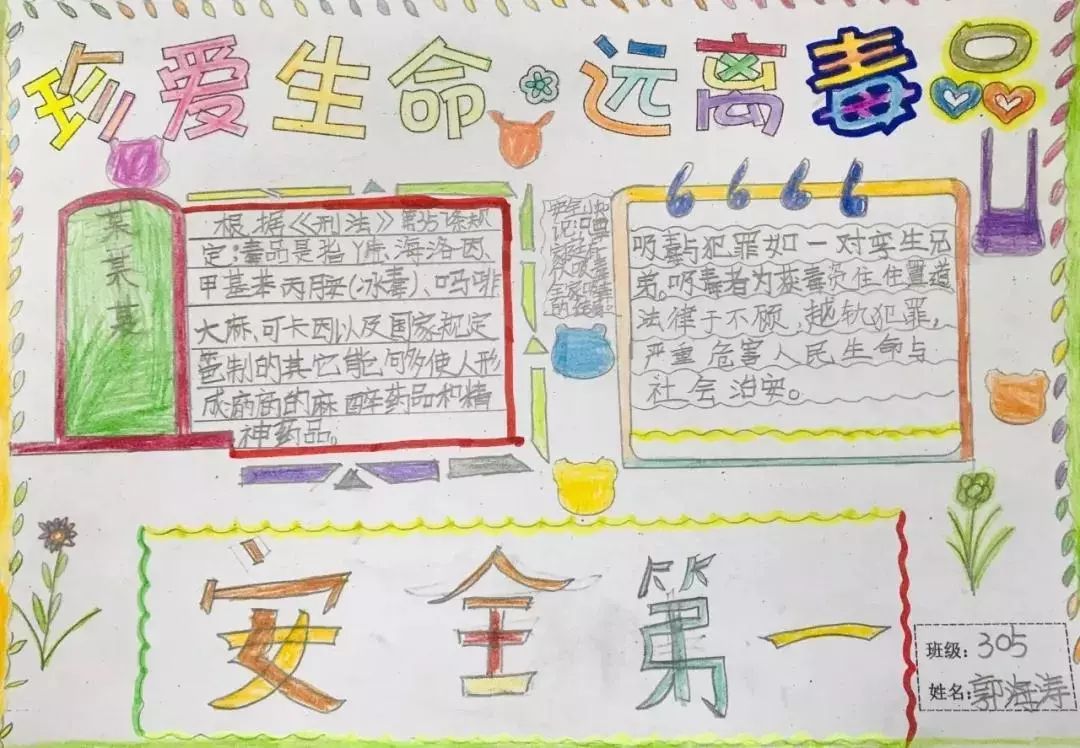 珍爱生命·远离毒品
根据《刑法》第357条规
定;毒品是指鸦片、海洛因、
甲基苯丙胺(冰毒)、吗啡
大麻、可卡因以及国家规定
管制的其它能何多使人形
成瘾的麻醉药品和精
神药品。
吸毒与犯罪如一对孪生兄
弟。吸毒者为获毒资往往置道
法律于不顾,越轨犯罪,
严重危害人民生命与
社会治安。
安全第一
班级:305
姓名:郭海涛